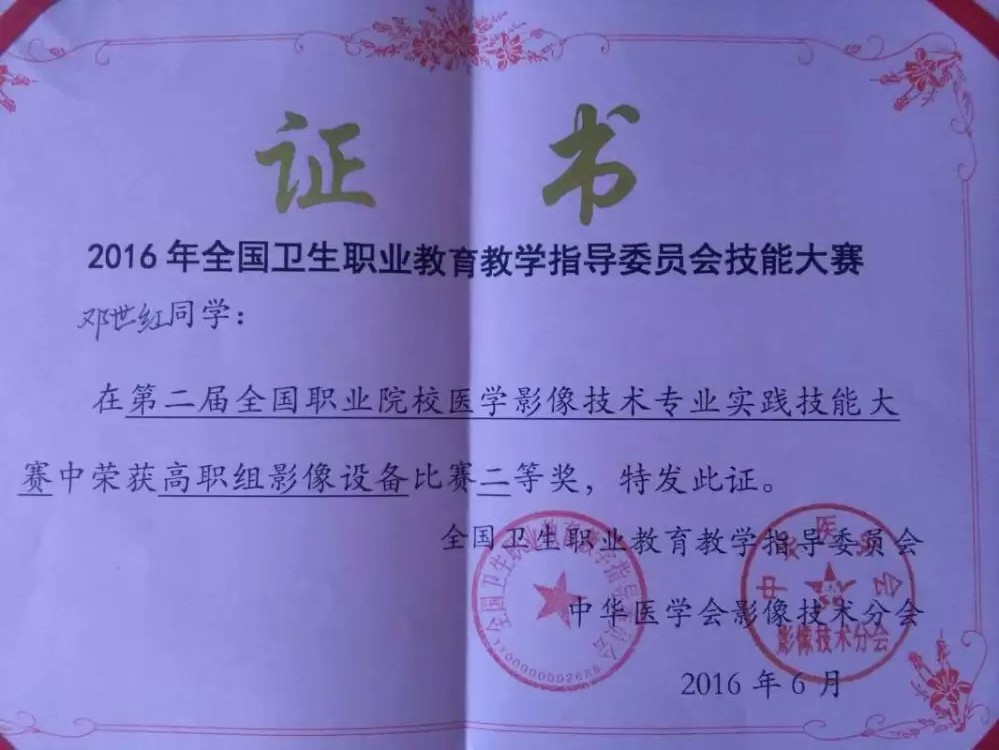 证书
2016年全国卫生职业教育教学指导委员会技能大赛
邓世红同学:
在第二届全国职业院校医学影像技术专业实践技能大
赛中荣获高职组影像设备比赛二等奖，特发此证。
全国卫生职业教育教学指导委员会
中华医学会影像技术分会
2016年6月
全国卫生职业教育教学指导委员会
中华医学会
影像技术分会